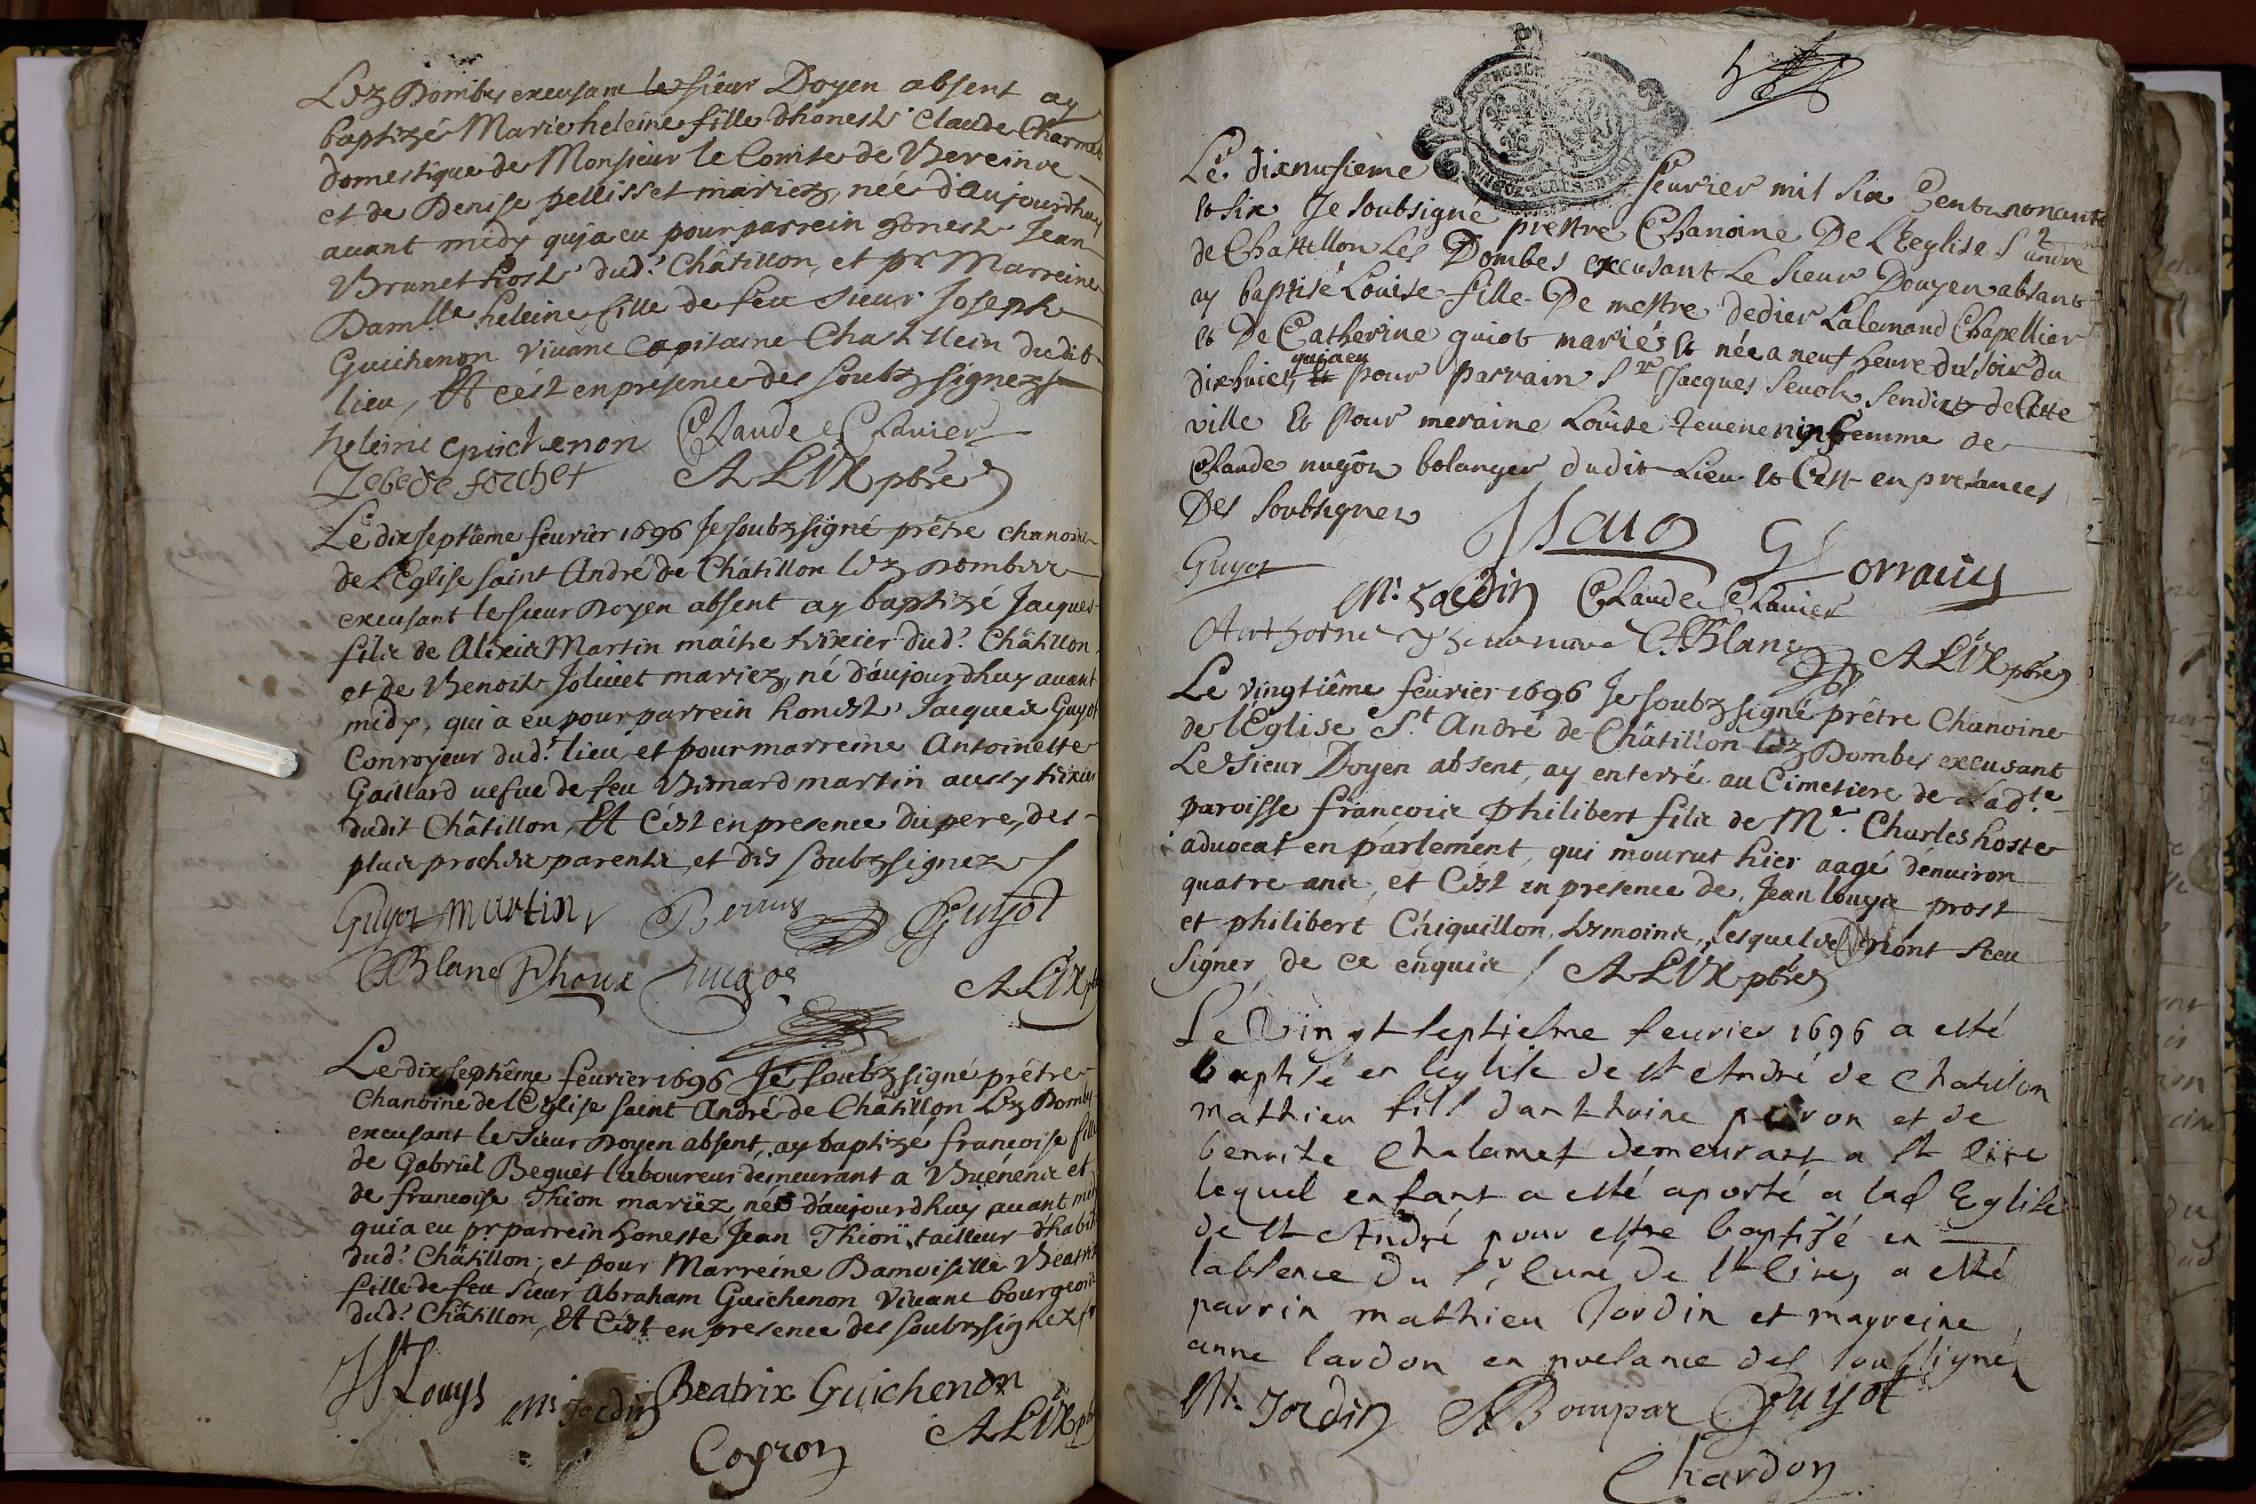 Lez Dombes excusant le sieur Doyen absent ay
baptizé Marie heleine fille d'honeste Claude Charmet
domestique de Monsieur le Comte de
et de Denise pellisset mariez, née d'aujourdhuy
avant midy qui a eu pour parrein honeste Jean
Brunet hoste dud.t Châtillon, et pr Marreine
Damlle heleine fille de feu sieur Joseph
Guichenon vivant Capitaine Chastellein dudit
lieu, Et c'est en presence des soubzsignez
heleine guichenon Claude Clavier
ALIX pbre
Le dixseptième fevrier 1696 Je soubzsigné prêtre chanoine
de L'Eglise saint André de Châtillon lez Dombes
excusant le sieur Doyen absent ay baptizé Jacques
filz de Alexis Martin maitre tixier dud.t Châtillon
et de Benoite Jolivet mariez, né d'aujourdhuy avant
midy, qui a eu pour parrein honeste Jacques Guyot
Conroyeur dud.t lieu, et pour marreine Antoinette
Gaillard vefue de feu Bernard martin aussy tixier
dudit Châtillon, Et C'est en presence du pere, des
plus proches parents, et des soubzsignez
Guyot martin Guyot
Blanc ALIX pbre
Le dixseptième fevrier 1696 Je soubzsigné prêtre
Chanoine de l'Eglise saint André de Châtillon Lez Dombes
excusant le sieur Doyen absent, ay baptizé francoise fille
de Gabriel Beguet laboureur demeurant a et
de francoise Thion mariez, née d'aujourdhuy avant midy
qui a eu pr parrein honeste Jean Thion tailleur d'habits
dud.t Châtillon, et pour Marreine Damoiselle Beatrix
fille de feu sieur Abraham Guichenon vivant bourgeois
dud.t Châtillon, Et C'est en presence des soubzsignez
Louys M. Jordin Beatrix Guichenon
ALIX pbre
Le dixneufieme fevrier mil six Cent nonante
et six Je soubsigné prestre Chanoine De L'Eeglise St andre
de Chastellon Les Dombes excusant Le sieur Douyen absant
ay baptisé Louise fille De mestre dedier Lalemand Chapellier
et De Catherine guiot mariés et née a neuf heure du soir du
dixhuict, qui a eu pour parrain Sr Jacques sevoz sendict de Cette
ville Et pour meraine Louise femme de
Claude nugon bolanger dudit Lieu et C'est en presances
Des soubsignes
Guyot
M. Jordin Claude Clavier
Blanc ALIX pbre
Le vingtième fevrier 1696 Je soubzsigné prêtre Chanoine
de l'Eglise St. André de Châtillon lez Dombes excusant
Le Sieur Doyen absent, ay enterré au Cimetiere de Ladte
paroisse francois Philibert filz de Me. Charles hoste
advocat en parlement, qui mourut hier aagé d'environ
quatre ans, et C'est en presence de Jean louys prost
et philibert Chiquillon, tesmoins, lesquels n'ont sceu
signer, de ce enquis / ALIX pbre
Le Vingt septiesme fevrier 1696 a esté
baptisé en leglise de st André de Chatillon
mathieu fils danthoine et de
benoite Chalamet demeurant a St Cire
lequel enfant a esté aporté a lad Eglise
de st André pour estre baptisé en
l'absence du Sr Curé de St Cire, a esté
parrin mathieu Jordin et mayreine
anne lardon en presance des soussignes
M. Jordin Bompar Guyot
Chardon